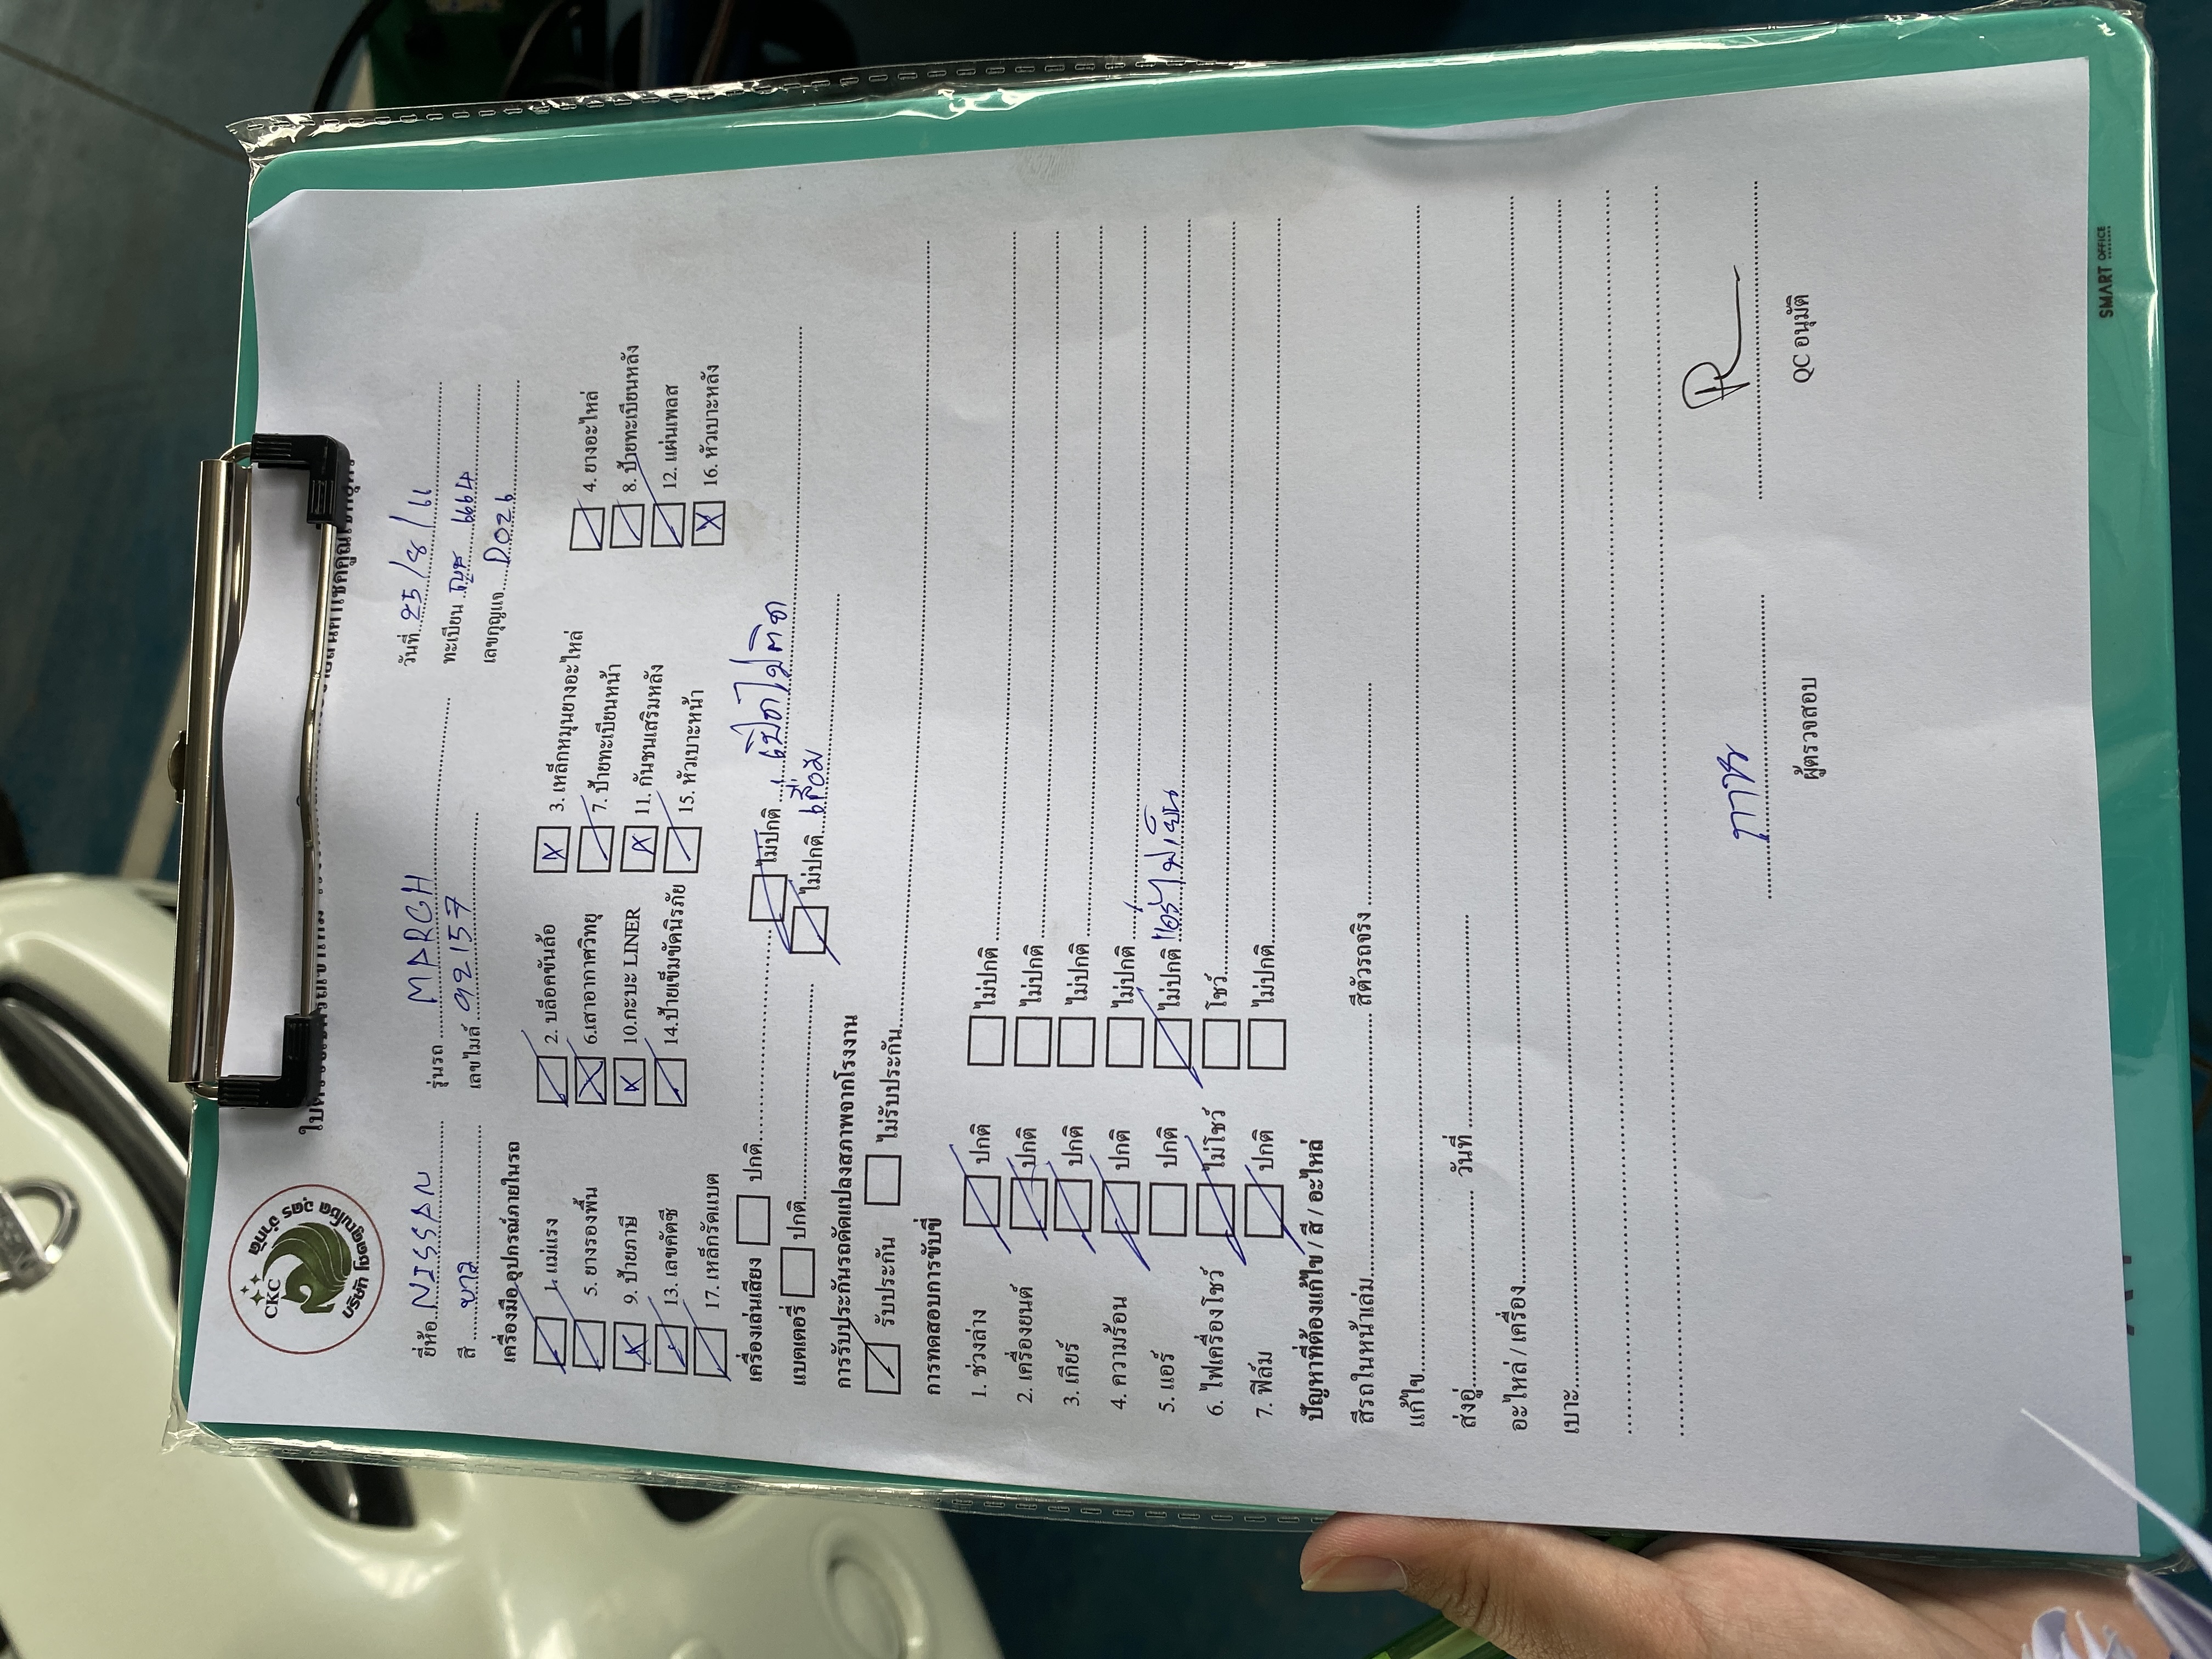 CKC
บริษัท โชคคูณโชค วุตร จำกัด
ยี่ห้อ NISSAN รุ่นรถ MARCH วันที่ 25/8/
สี ขาว เลขไมล์ 92157 ทะเบียน 6664
เลขกุญแจ D026
เครื่องมือ อุปกรณ์ภายในรถ
1. แม่แรง 2. บล็อคขันล้อ 3. เหล็กหมุนยางอะไหล่ 4. ยางอะไหล่
5. ยางรองพื้น 6.เสาอากาศวิทยุ 7. ป้ายทะเบียนหน้า 8. ป้ายทะเบียนหลัง
9. ป้ายภาษี 10.กะบะ LINER 11. กันชนเสริมหลัง 12. แผ่นเพลส
13. เลขคัตซี 14.ป้ายเข็มขัดนิรภัย 15. หัวเบาะหน้า 16. หัวเบาะหลัง
17. เหล็กรัดแบต
เครื่องเล่นเสียง ปกติ ไม่ปกติ เปิดไม่ติด
แบตเตอรี่ ปกติ ไม่ปกติ เสื่อม
การรับประกันรถดัดแปลงสภาพจากโรงงาน
รับประกัน ไม่รับประกัน
การทดสอบการขับขี่
1. ช่วงล่าง ปกติ ไม่ปกติ
2. เครื่องยนต์ ปกติ ไม่ปกติ
3. เกียร์ ปกติ ไม่ปกติ
4. ความร้อน ปกติ ไม่ปกติ
5. แอร์ ปกติ ไม่ปกติ แอร์ไม่เย็น
6. ไฟเครื่องโชว์ ไม่โชว์ โชว์
7. ฟิล์ม ปกติ ไม่ปกติ
ปัญหาที่ต้องแก้ไข / สี / อะไหล่
สีรถในหน้าเล่ม สีตัวรถจริง
แก้ไข
ส่งอู่ วันที่
อะไหล่ / เครื่อง
เบาะ
ผู้ตรวจสอบ QC อนุมัติ
SMART OFFICE